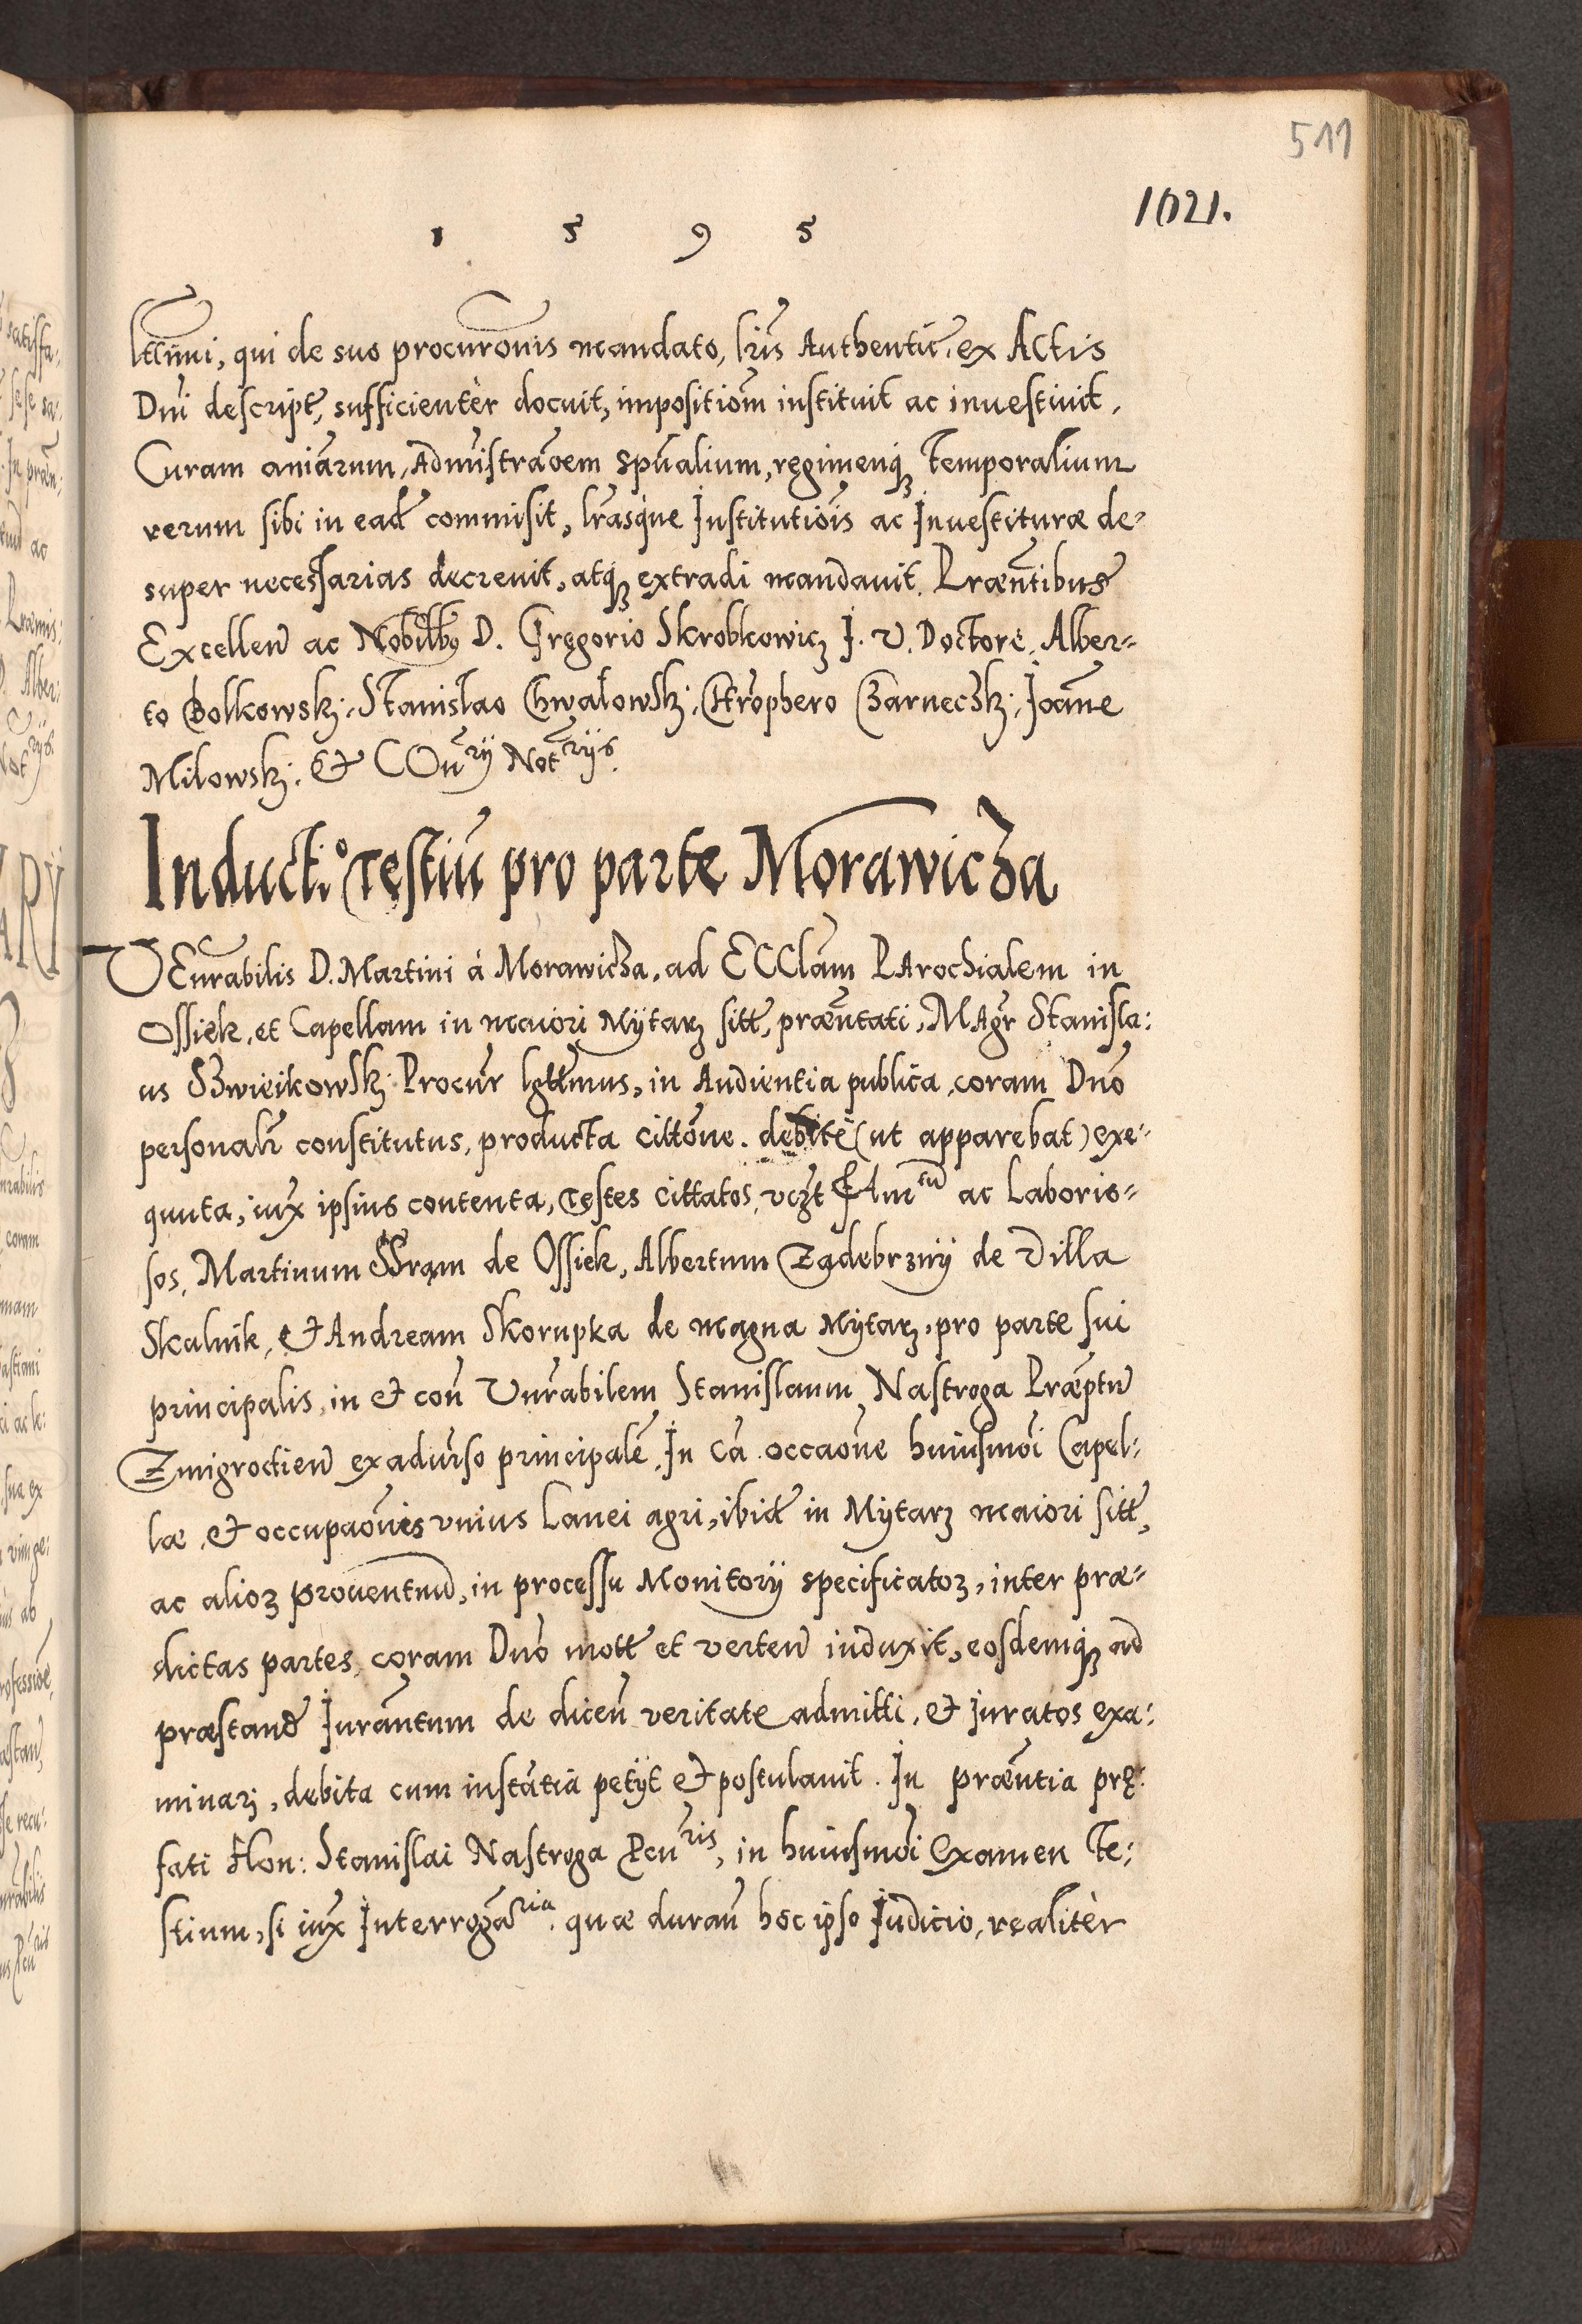 511
1021.
1 5 9 5
lttimi, qui de suo procurōnis mandato, lris Authentic. ex Actis
Dni descript, sufficientèr docuit, impositiom instituit ac inuestiuit,
Curam aniārum, Admīstrāoem spūalium, regimenq; Temporalium
rerum sibi in ead commisit, lrasque Institutiois ac Inuestituræ de-
super necessarias decreuit, atq; extradi mandauit. Præntibus
Excellen ac Nobilibg D. Gregorio Skrobkowicz I. V. Doctore, Alber-
to Bolkowskj, Stanislao Chwałowskj, Chrophero Czarneczkj, Joāne
Milowskj. Et COnrÿ Notrÿs.
Inducti.° Testiū pro parte Morawicza
VEnrabilis D. Martini à Morawicza, ad ECClām PArochialem in
Ossiek, et Capellam in maiori Mÿtarz sitt, præntati, MAgr Stanisla:
us Szwieikowskj Procur lgttimus, in Audientia publica, coram Dnō
personalr constitutus, producta cittōne. debite (ut apparebat) exe-
quuta, iux ipsius contenta, Testes cittatos, vczt FAmtū ac Laborio-
sos, Martinum Sram de Ossiek, Albertum Zadebrznÿ de Villa
Skalnik, et Andream Skorupka de magna Mÿtarz, pro parte sui
principalis, in et con Vnrabilem Stanislaum Nastroga Præptū
Zmigrodien ex aduerso principale. In Cā occaōne huiusmōi Capel:
læ, et occupaōnis vnius Lanei agri, ibid in Mÿtarz maiori sitt,
ac alioz prouentuū, in processu Monitorÿ specificatoz, inter præ-
dictas partes, coram Dnō mott et verten induxit, eosdemq; ad
præstand Iurāntum de dicen veritate admitti, et juratos exa:
minarj, debita cum instātia petÿt et postulauit. In præntia pre:
fati Hon: Stanislai Nastroga Pcuris, in huiusmōi Examen Te:
stium, si iux Interrogāria, quæ duran hoc ipso Iudicio, realitèr